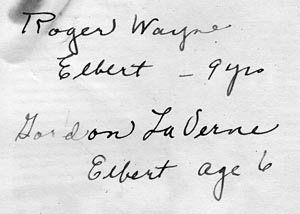 Roger Wayne
Elbert - 9 yrs
Gordon LaVerne
Elbert age 6